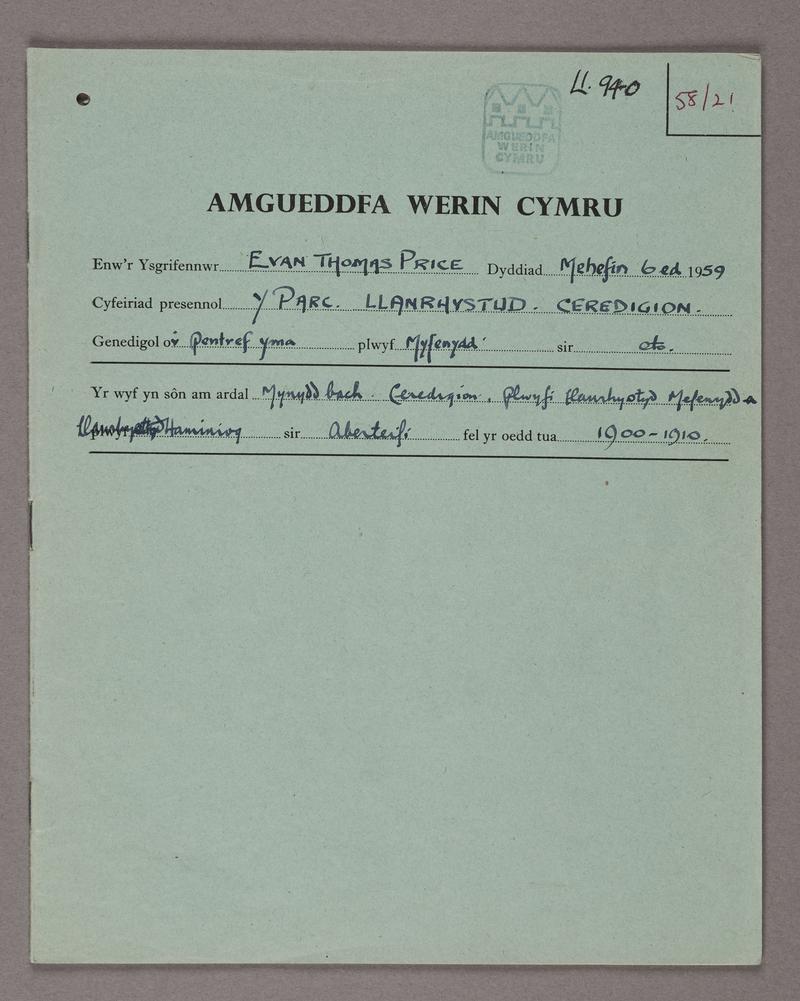 Ll. 940
58/21
AMGUEDDFA
WERIN
CYMRU
AMGUEDDFA WERIN CYMRU
Enw'r Ysgrifennwr EVAN THOMAS PRICE Dyddiad Mehefin 6ed 1959
Cyfeiriad presennol Y PARC. LLANRHYSTUD. CEREDIGION.
Genedigol o'r pentref yma plwyf Myfenydd sir
Yr wyf yn sôn am ardal Mynydd bach. Ceredigion. Plwyfi Llanrhystyd Mefenydd a
Haminiog sir Aberteifi fel yr oedd tua 1900-1910.